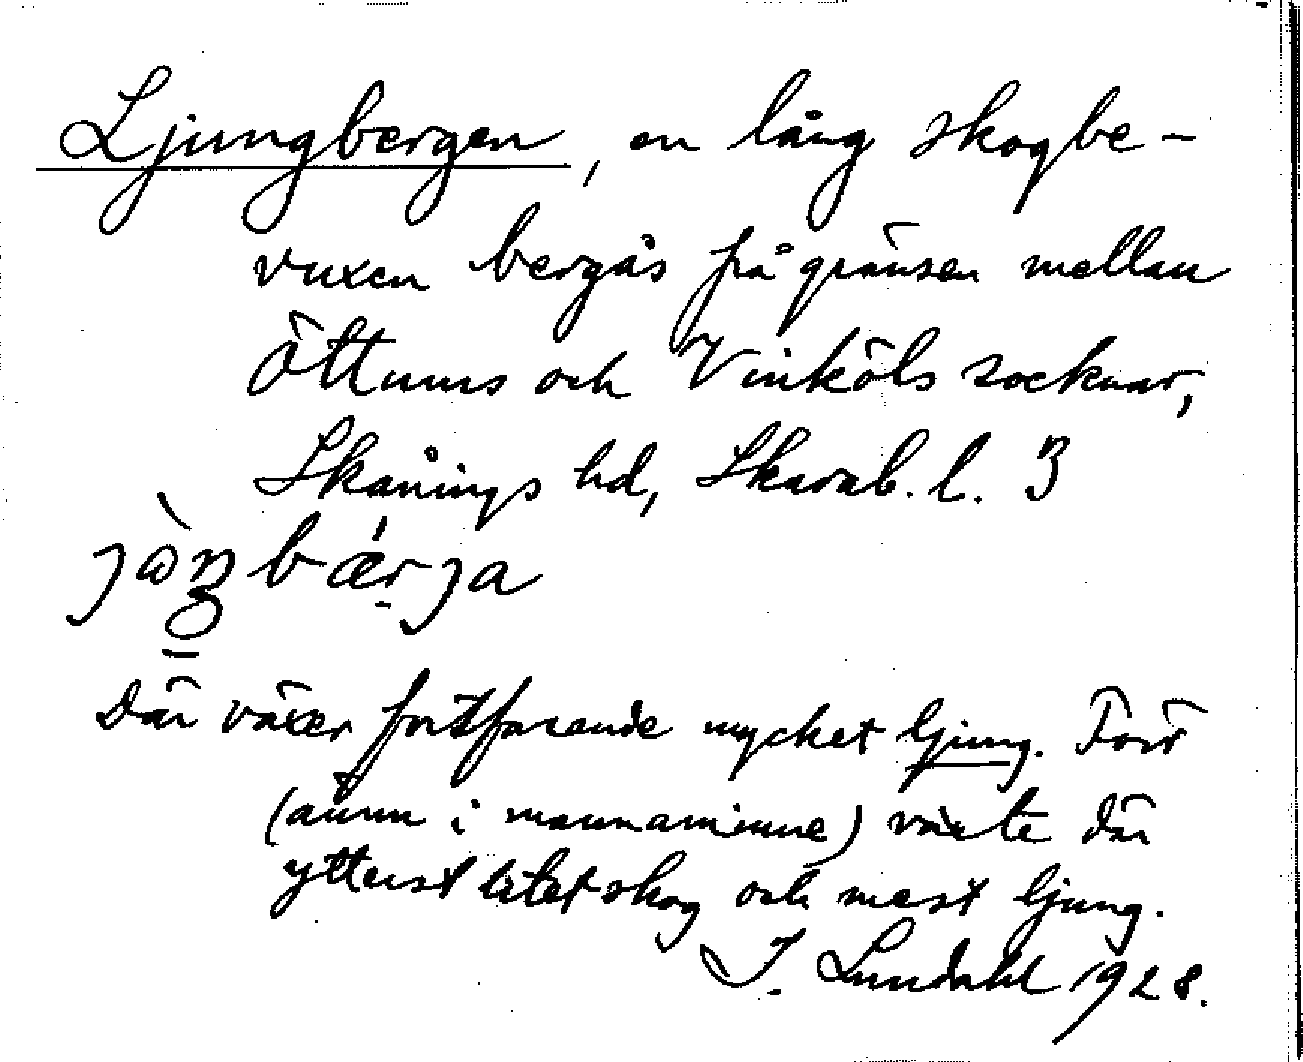 Ljungbergen, en lång skogbe-
vuxen bergås på gränsen mellan
Öttums och Vinköls socknar,
Skånings hd, Skarab. l. 3
Där växer fortfarande mycket ljung. Förr
(ännu i mannaminne) växte där
ytterst litet skog och mest ljung.
I. Lundahl 1928.